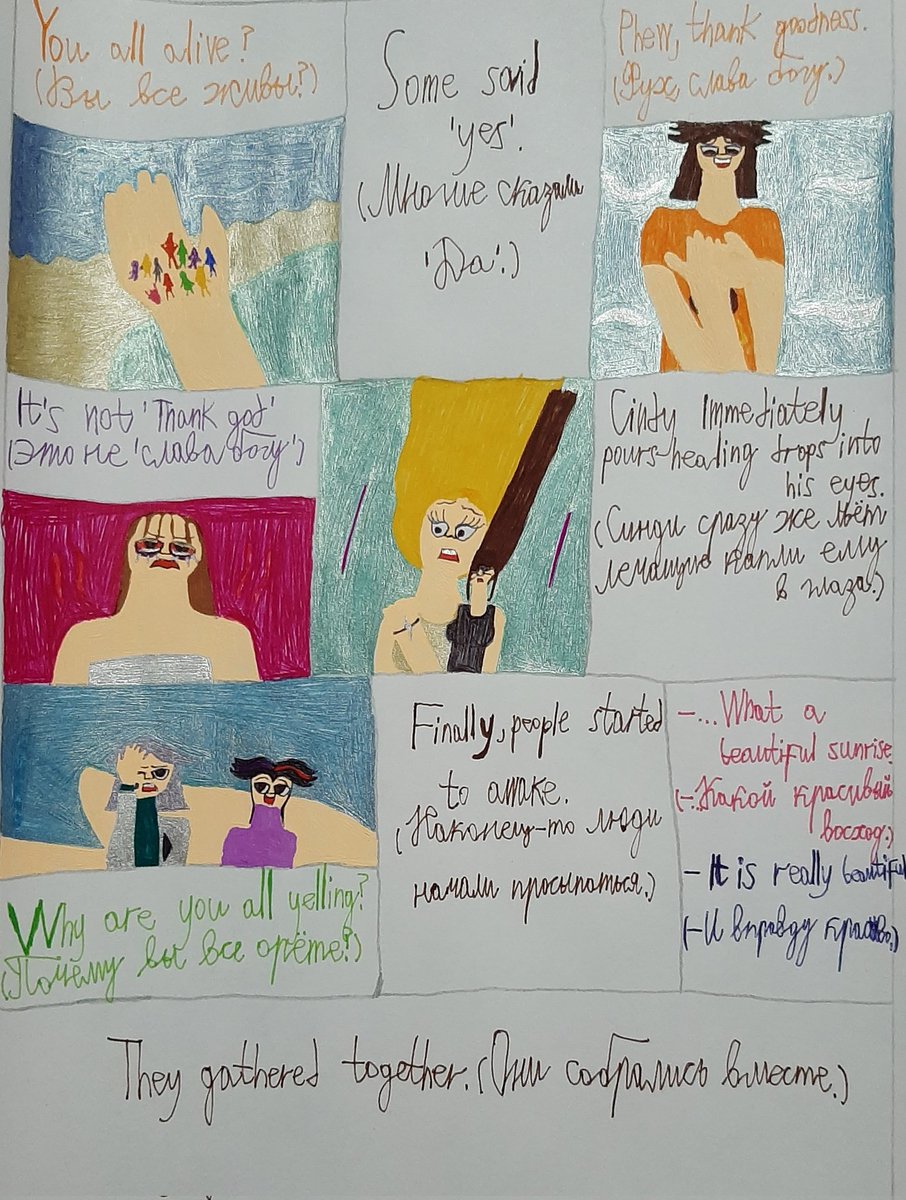 You all alive?
(Вы все живы?)
Some said
'yes'.
(Многие сказали
'Да'.)
Phew, thank goodness.
(Фух, слава богу.)
It's not 'Thank god'
(Это не 'слава богу')
Cindy immediately
pours healing drops into
his eyes.
(Синди сразу же льёт
лечащие капли ему
в глаза.)
Why are you all yelling?
(Почему вы все орёте?)
Finally, people started
to awake.
(Наконец-то люди
начали просыпаться.)
-...What a
beautiful sunrise.
(-...Какой красивый
восход.)
- It is really beautiful
(-И вправду красиво.)
They gathered together. (Они собрались вместе.)